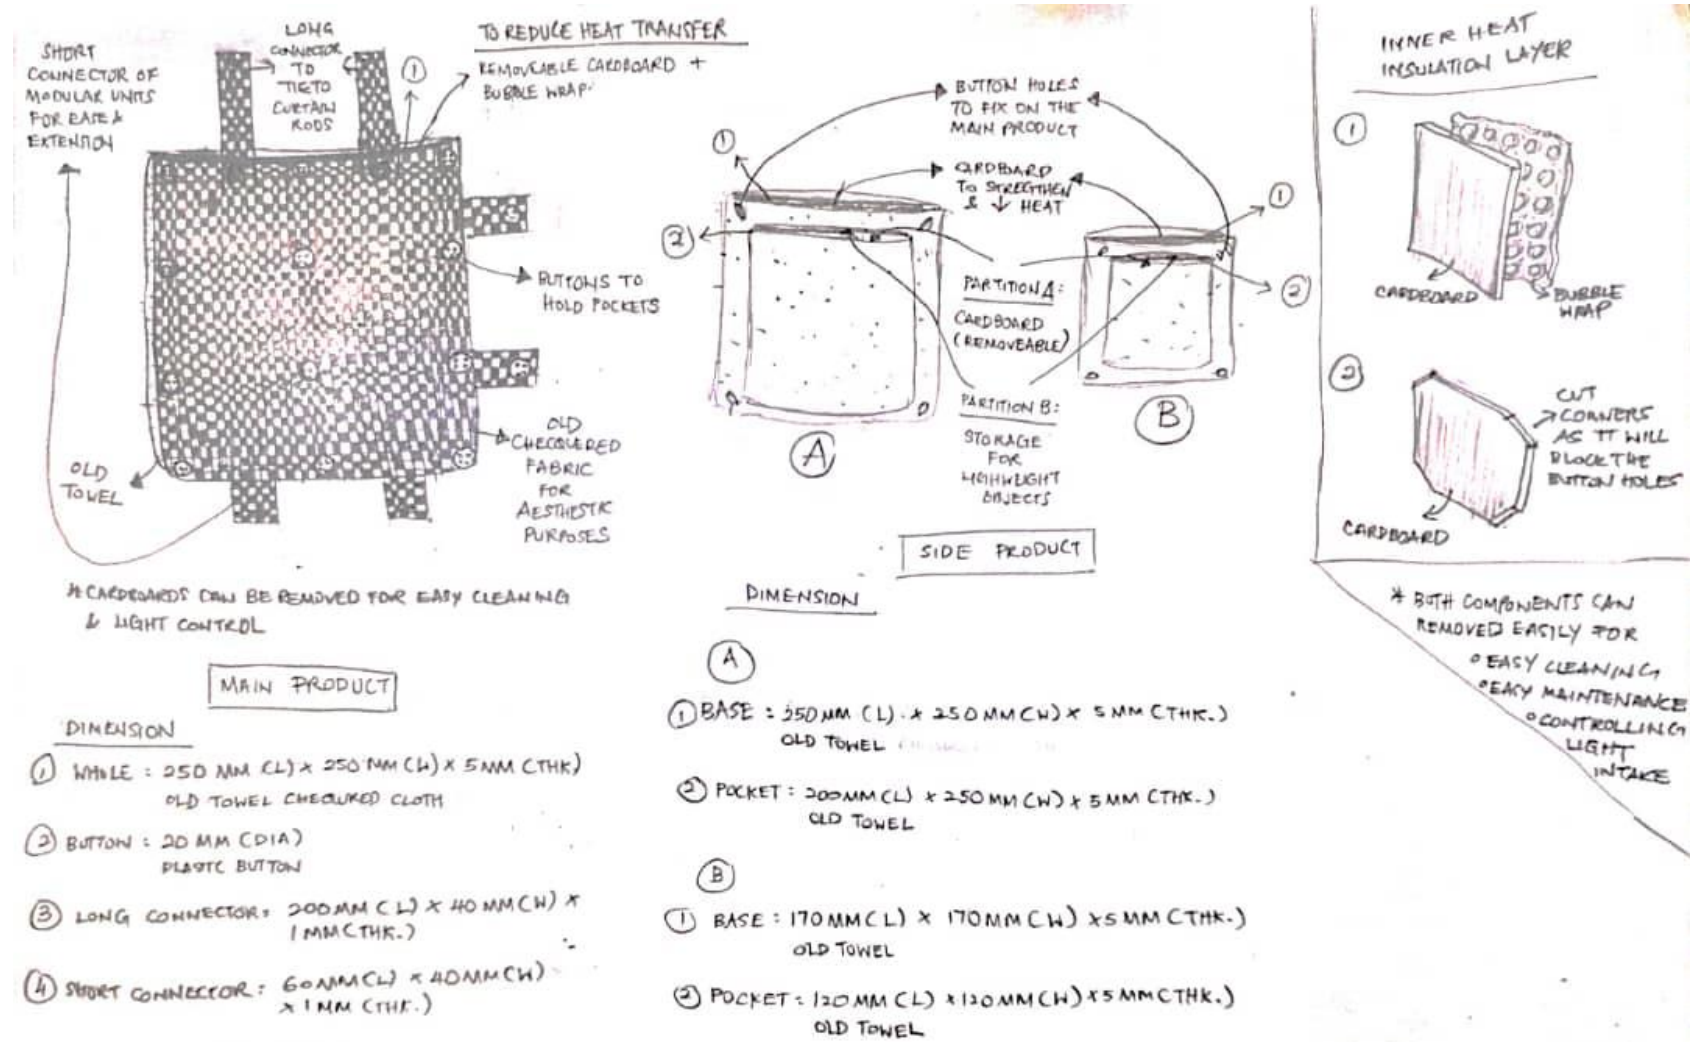 SHORT
CONNECTOR OF
MODULAR UNITS
FOR EASE &
EXTENSION
LONG
CONNECTOR
TO
TIE TO
CURTAIN
RODS
①
TO REDUCE HEAT TRANSFER
REMOVEABLE CARDBOARD +
BUBBLE WRAP.
BUTTONS TO
HOLD POCKETS
OLD
CHECQUERED
FABRIC
FOR
AESTHESTIC
PURPOSES
OLD
TOWEL
* CARDBOARDS CAN BE REMOVED FOR EASY CLEANING
& LIGHT CONTROL
MAIN PRODUCT
DIMENSION
① WHOLE : 250 MM (L) x 250 MM (W) x 5 MM (THK)
OLD TOWEL CHEQURED CLOTH
② BUTTON : 20 MM (DIA)
PLASTC BUTTON
③ LONG CONNECTOR: 200 MM (L) x 40 MM (W) x
1 MM (THK.)
④ SHORT CONNECTOR: 60 MM (L) x 40 MM (W)
x 1 MM (THK.)
BUTTON HOLES
TO FIX ON THE
MAIN PRODUCT
①
CARDBOARD
TO STREGTHEN
& ↓ HEAT
①
②
PARTITION A:
CARDBOARD
(REMOVEABLE)
②
PARTITION B:
STORAGE
FOR
LIGHWLIGHT
OBJECTS
A
B
SIDE PRODUCT
DIMENSION
A
① BASE : 350 MM (L) . x 250 MM (W) x 5 MM (THK.)
OLD TOWEL
② POCKET : 200 MM (L) x 250 MM (W) x 5 MM (THK.)
OLD TOWEL
B
① BASE : 170 MM (L) x 170 MM (W) x 5 MM (THK.)
OLD TOWEL
② POCKET : 120 MM (L) x 120 MM (W) x 5 MM (THK.)
OLD TOWEL
INNER HEAT
INSULATION LAYER
①
CARDBOARD
BUBBLE
WRAP
②
CUT
CORNERS
AS IT WILL
BLOCK THE
BUTTON HOLES
CARDBOARD
* BOTH COMPONENTS CAN
REMOVED EASILY FOR
o EASY CLEANING
o EASY MAINTENANCE
o CONTROLLING
LIGHT
INTAKE